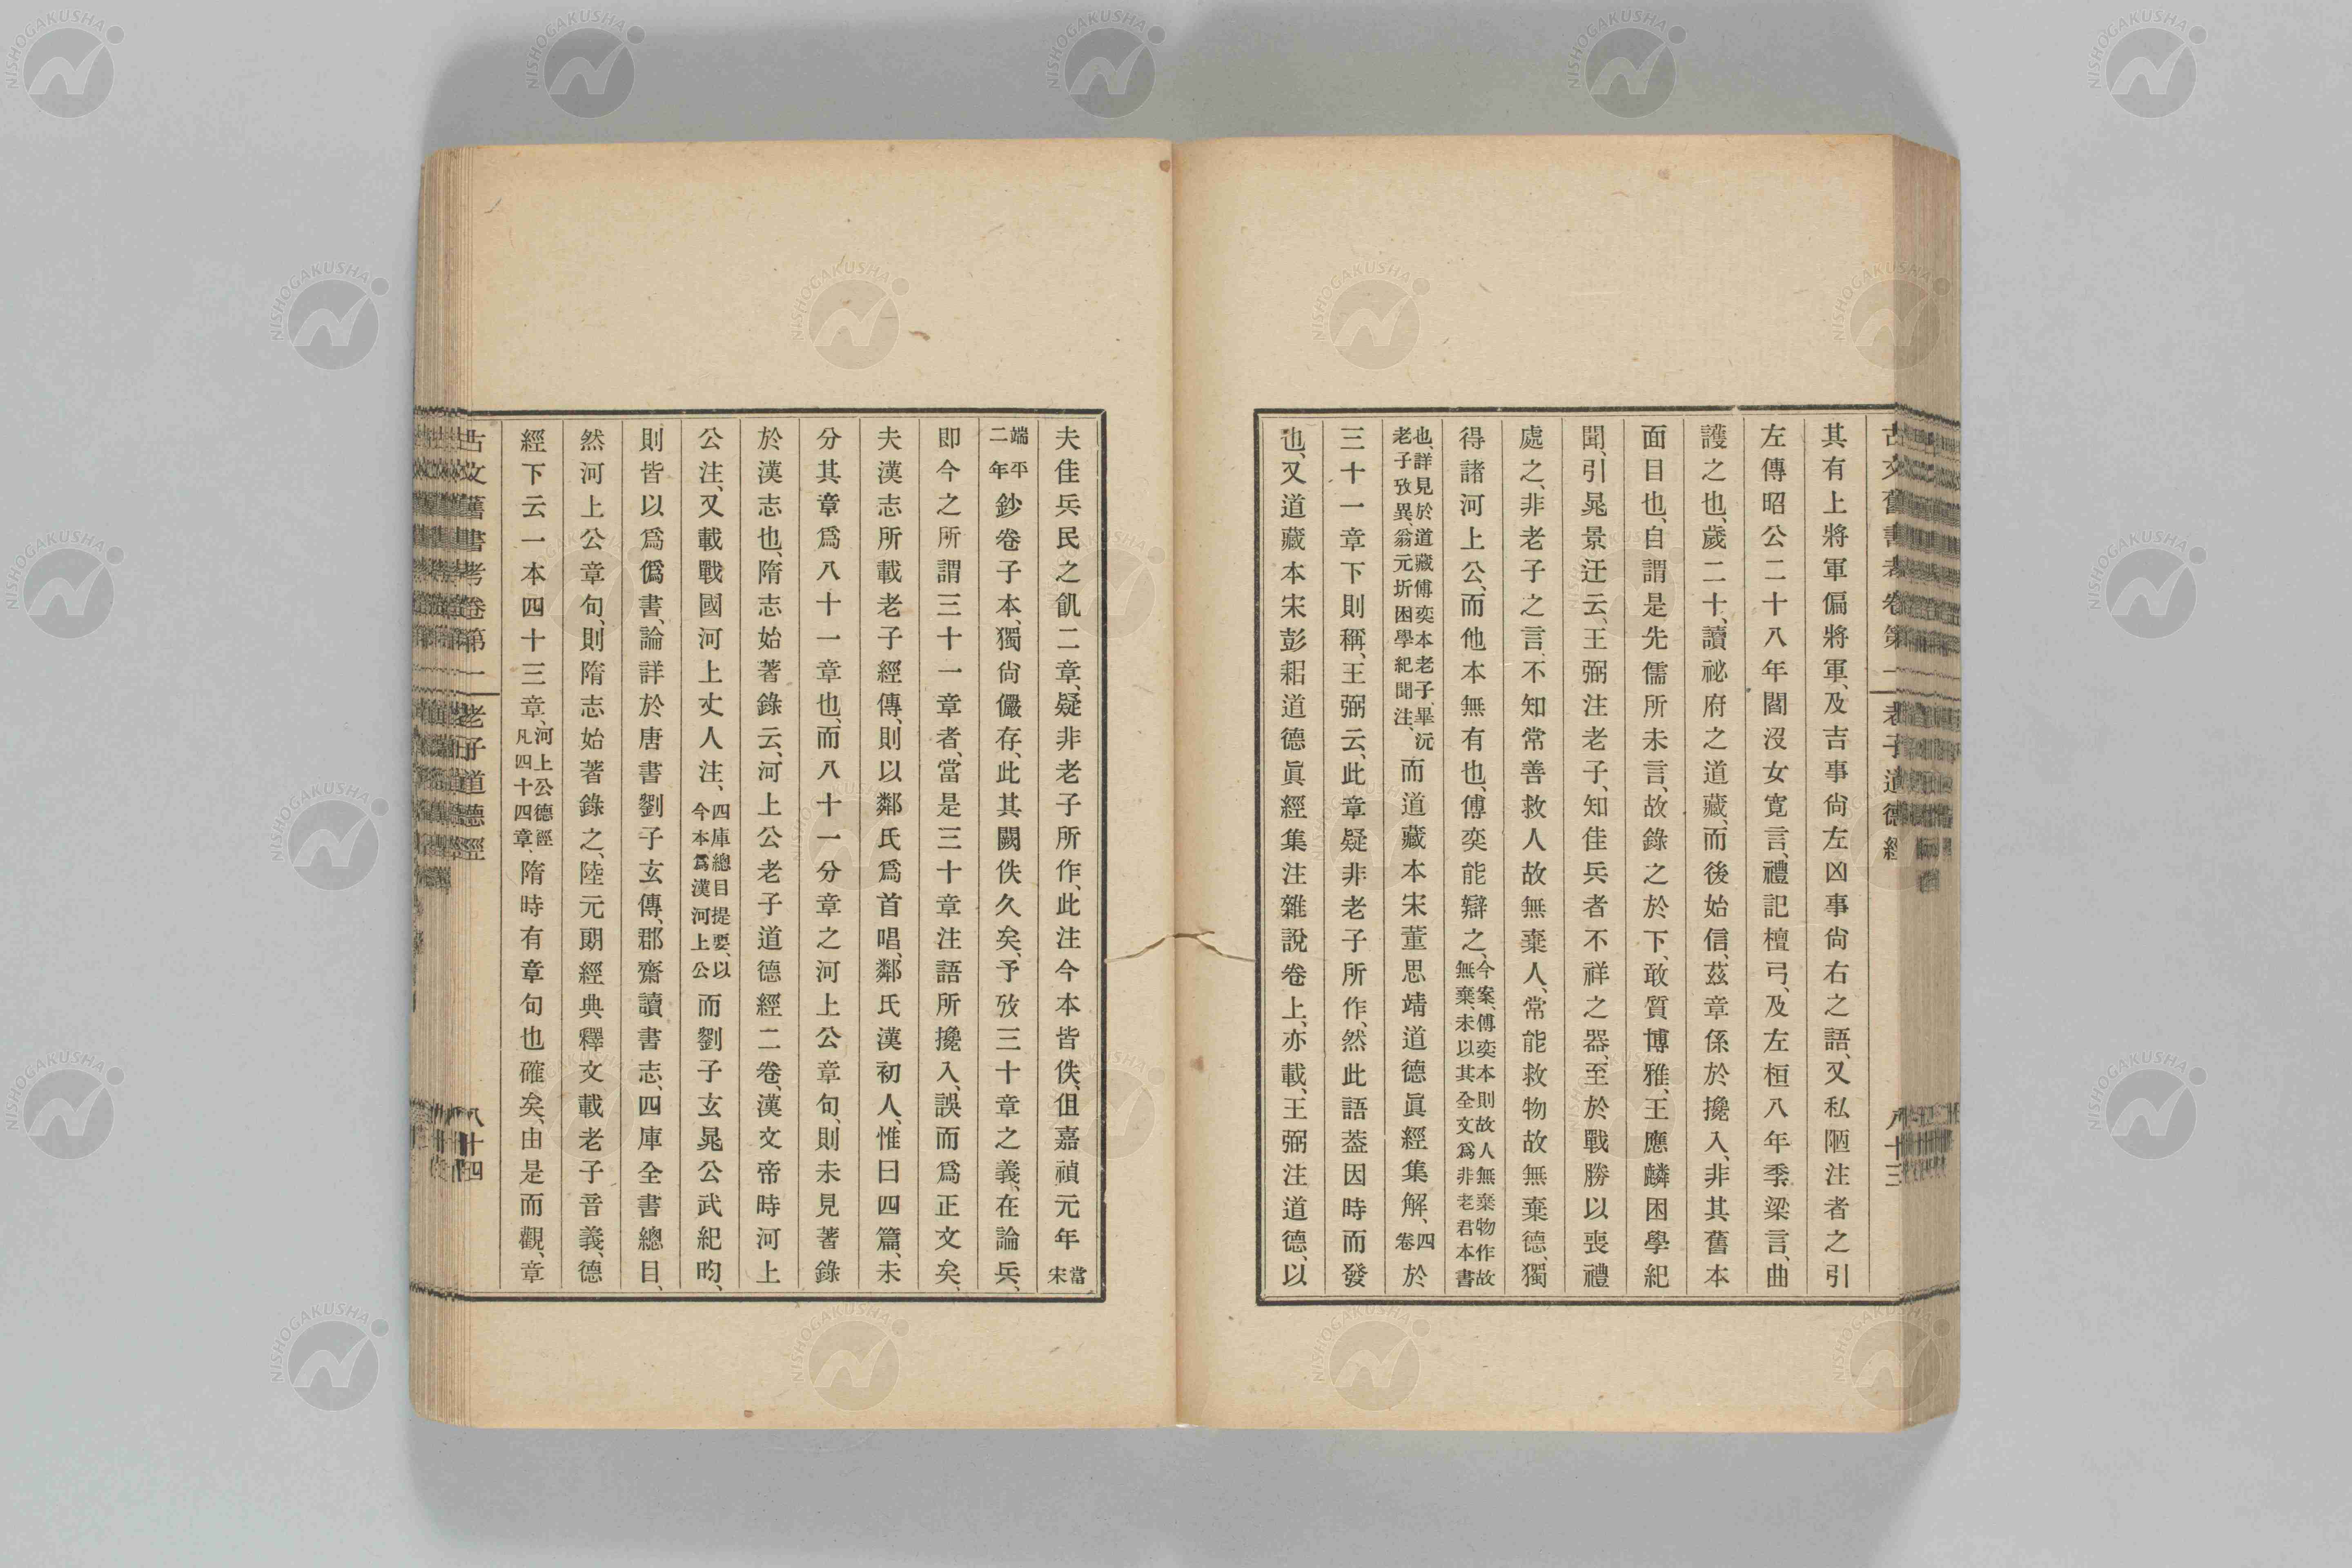 古文舊書考卷第一　老子道德經　八十三
其有上將軍偏將軍、及吉事尙左凶事尙右之語、又私陋注者之引
左傳昭公二十八年閻沒女寬言、禮記檀弓、及左桓八年季梁言、曲
護之也、歲二十、讀祕府之道藏、而後始信、茲章係於攙入、非其舊本
面目也、自謂是先儒所未言、故錄之於下、敢質博雅、王應麟困學紀
聞、引晁景迂云、王弼注老子、知佳兵者不祥之器、至於戰勝以喪禮
處之、非老子之言、不知常善救人故無棄人、常能救物故無棄德、獨
得諸河上公、而他本無有也、傅奕能辯之、今案、傅奕本則故人無棄物作故無棄、未以其全文爲非老君本書
也、詳見於道藏傅奕本老子、畢沅老子攷異、翁元圻困學紀聞注、而道藏本宋董思靖道德眞經集解、四卷於
三十一章下則稱、王弼云、此章疑非老子所作、然此語蓋因時而發
也、又道藏本宋彭耜道德眞經集注雜說卷上、亦載、王弼注道德、以
夫佳兵民之飢二章、疑非老子所作、此注今本皆佚、但嘉禎元年當宋
端平二年鈔卷子本、獨尙儼存、此其闕佚久矣、予攷三十章之義、在論兵、
即今之所謂三十一章者、當是三十章注語所攙入、誤而爲正文矣、
夫漢志所載老子經傳、則以鄰氏爲首唱、鄰氏漢初人、惟曰四篇、未
分其章爲八十一章也、而八十一分章之河上公章句、則未見著錄
於漢志也、隋志始著錄云、河上公老子道德經二卷、漢文帝時河上
公注、又載戰國河上丈人注、四庫總目提要、以今本爲漢河上公而劉子玄晁公武紀昀、
則皆以爲僞書、論詳於唐書劉子玄傳、郡齋讀書志、四庫全書總目、
然河上公章句、則隋志始著錄之、陸元朗經典釋文載老子音義、德
經下云一本四十三章、河上公德經凡四十四章、隋時有章句也確矣、由是而觀、章
古文舊書考卷第一　老子道德經　八十四